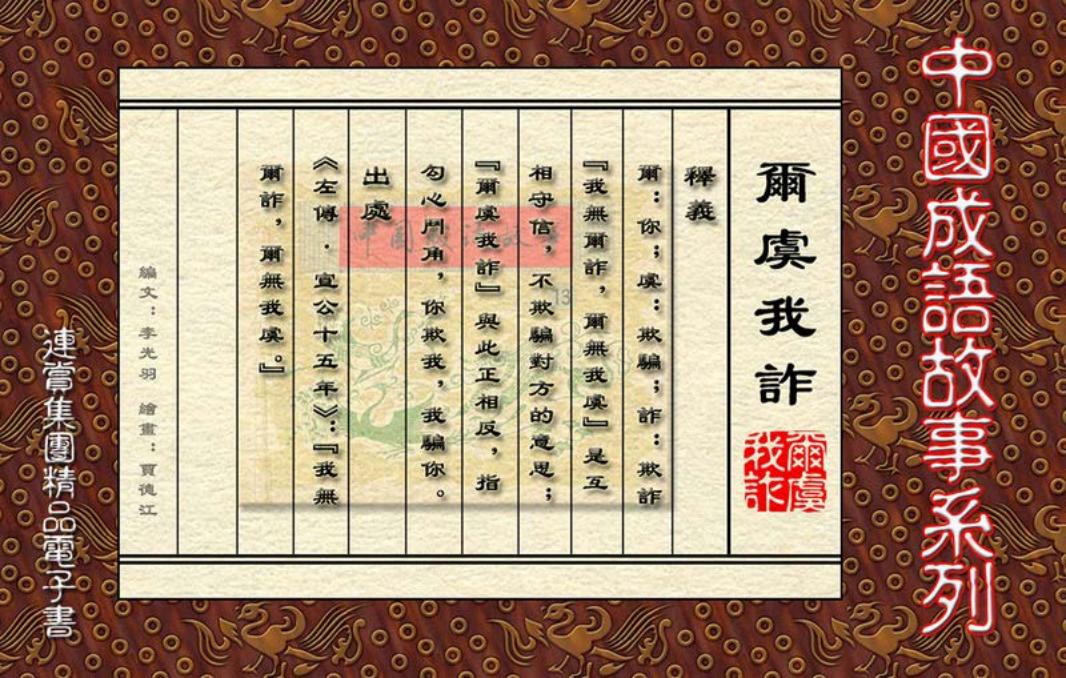 中國成語故事系列
爾虞我詐
爾虞
我詐
釋義
爾：你；虞：欺騙；詐：欺詐
『我無爾詐，爾無我虞』是互
相守信，不欺騙對方的意思；
『爾虞我詐』與此正相反，指
勾心鬥角，你欺我，我騙你。
出處
《左傳．宣公十五年》：『我無
爾詐，爾無我虞。』
編文：李光羽 繪畫：賈德江
連賞集團精品電子書